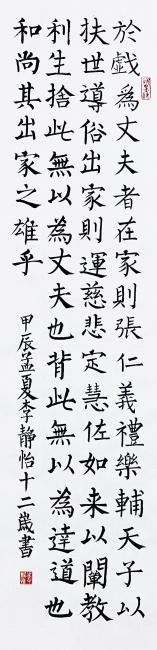 於戲為丈夫者在家則張仁義禮樂輔天子以
扶世導俗出家則運慈悲定慧佐如来以闡教
利生捨此無以為丈夫也背此無以為達道也
和尚其出家之雄乎
甲辰孟夏李靜怡十二歲書